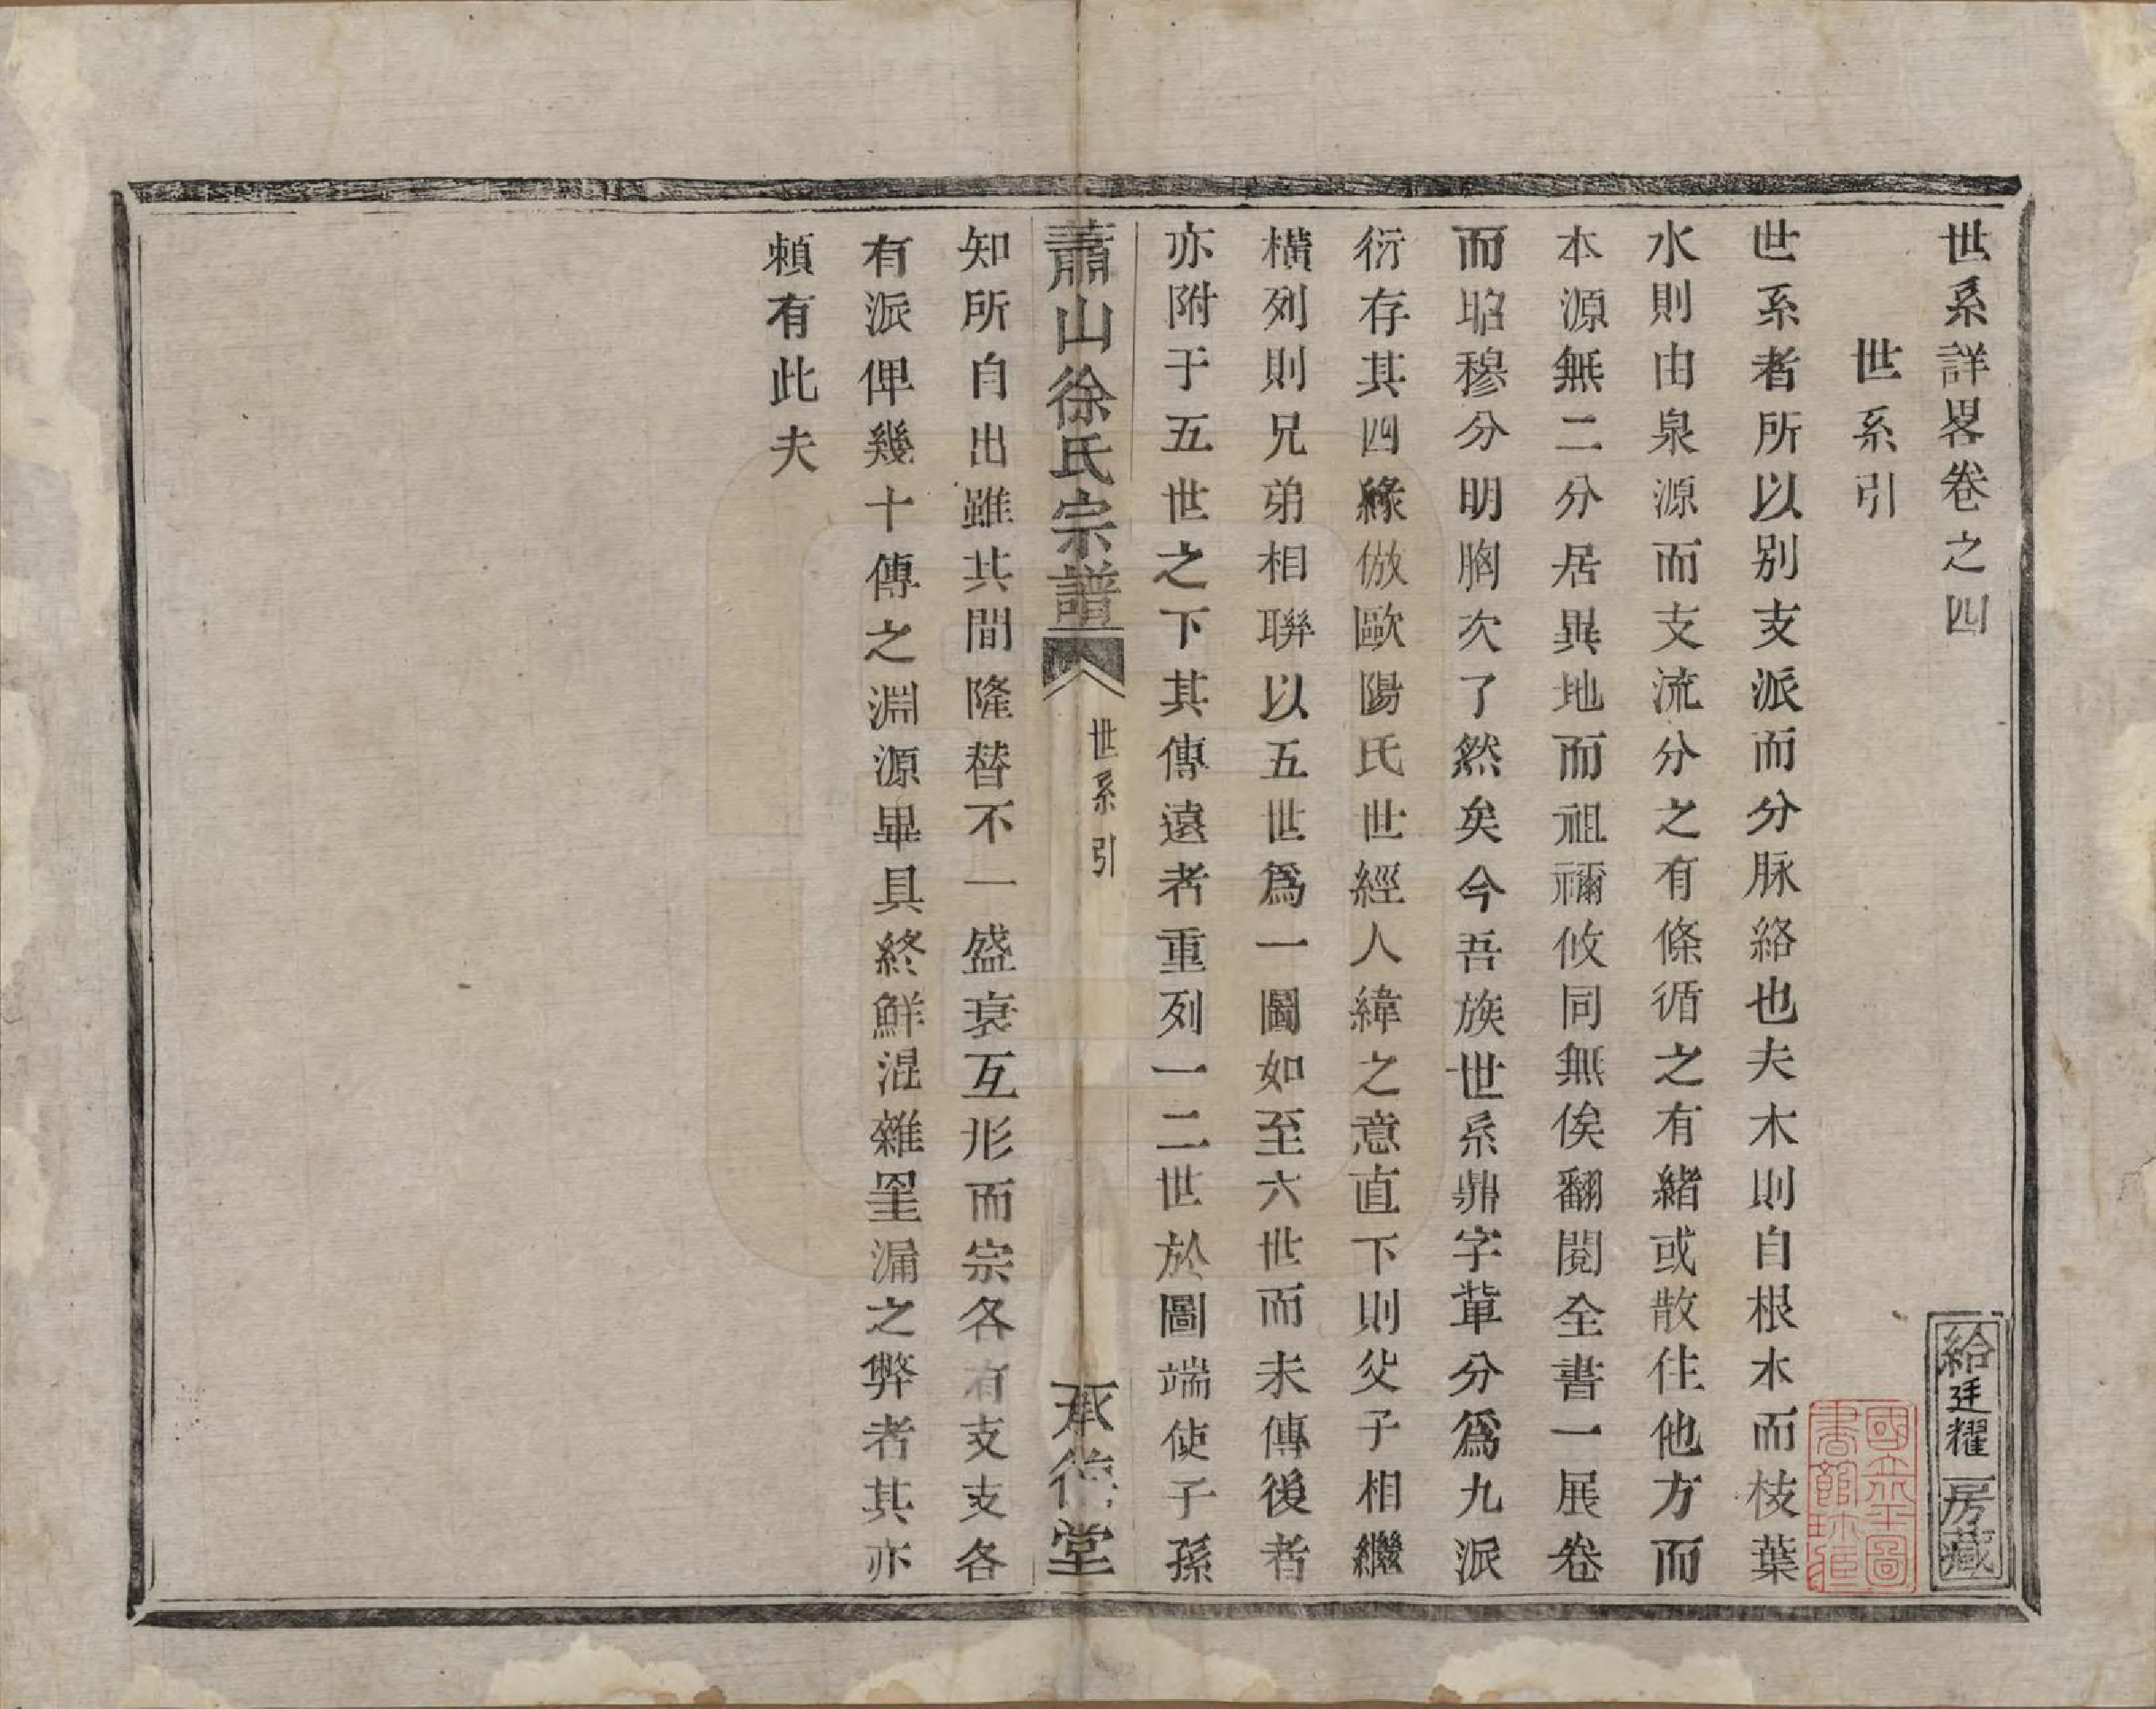 世系詳畧卷之四
給廷耀房藏
世系引
國立北平圖書館珍藏
世系者所以别支派而分脉絡也夫木則自根本而枝葉
水則由泉源而支流分之有條循之有緒或散住他方而
本源無二分居異地而祖禰攸同無俟翻閱全書一展卷
而昭穆分明胸次了然矣今吾族世系鼎字軰分爲九派
衍存其四緣倣歐陽氏世經人緯之意直下則父子相繼
橫列則兄弟相聯以五世爲一圖如至六世而未傳後者
亦附于五世之下其傳遠者重列一二世於圖端使子孫
蕭山徐氏宗譜
世系引
承德堂
知所自出雖其間隆替不一盛衰互形而宗各有支支各
有派俾幾十傳之淵源畢具終鮮混雜罣漏之弊者其亦
賴有此夫